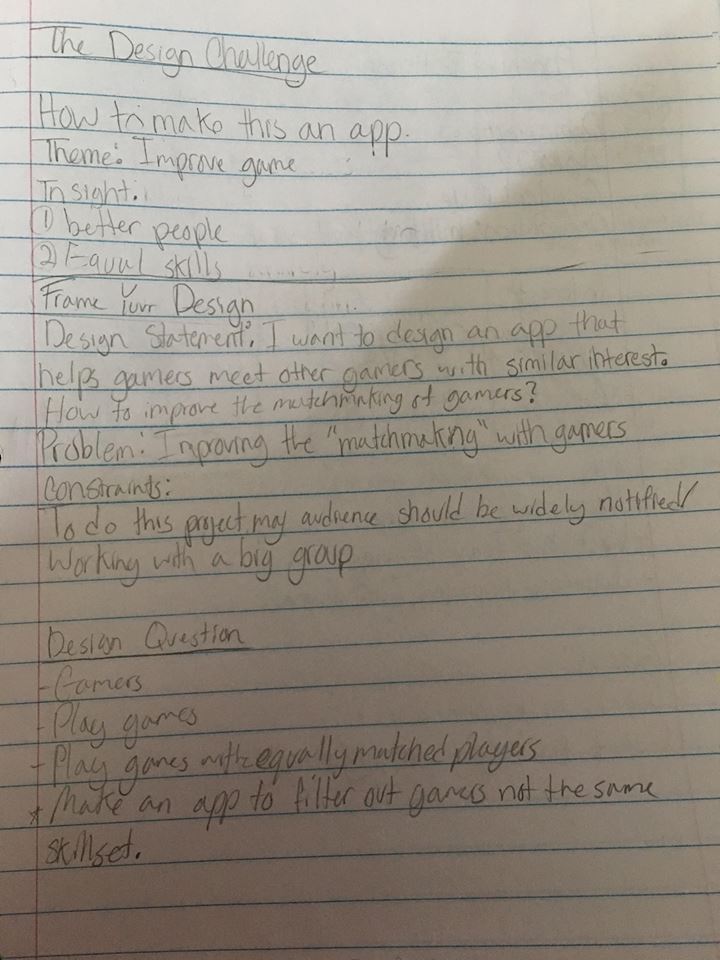 The Design Challenge
How to make this an app.
Theme: Improve game
Insight:
① better people
② Equal skills
Frame Your Design
Design Statement: I want to design an app that
helps gamers meet other gamers with similar interest.
How to improve the matchmaking of gamers?
Problem: Improving the "matchmaking" with gamers
Constraints:
To do this project my audience should be widely notified/
Working with a big group
Design Question
- Gamers
- Play games
- Play games with equally matched players
* Make an app to filter out gamers not the same
skillset.